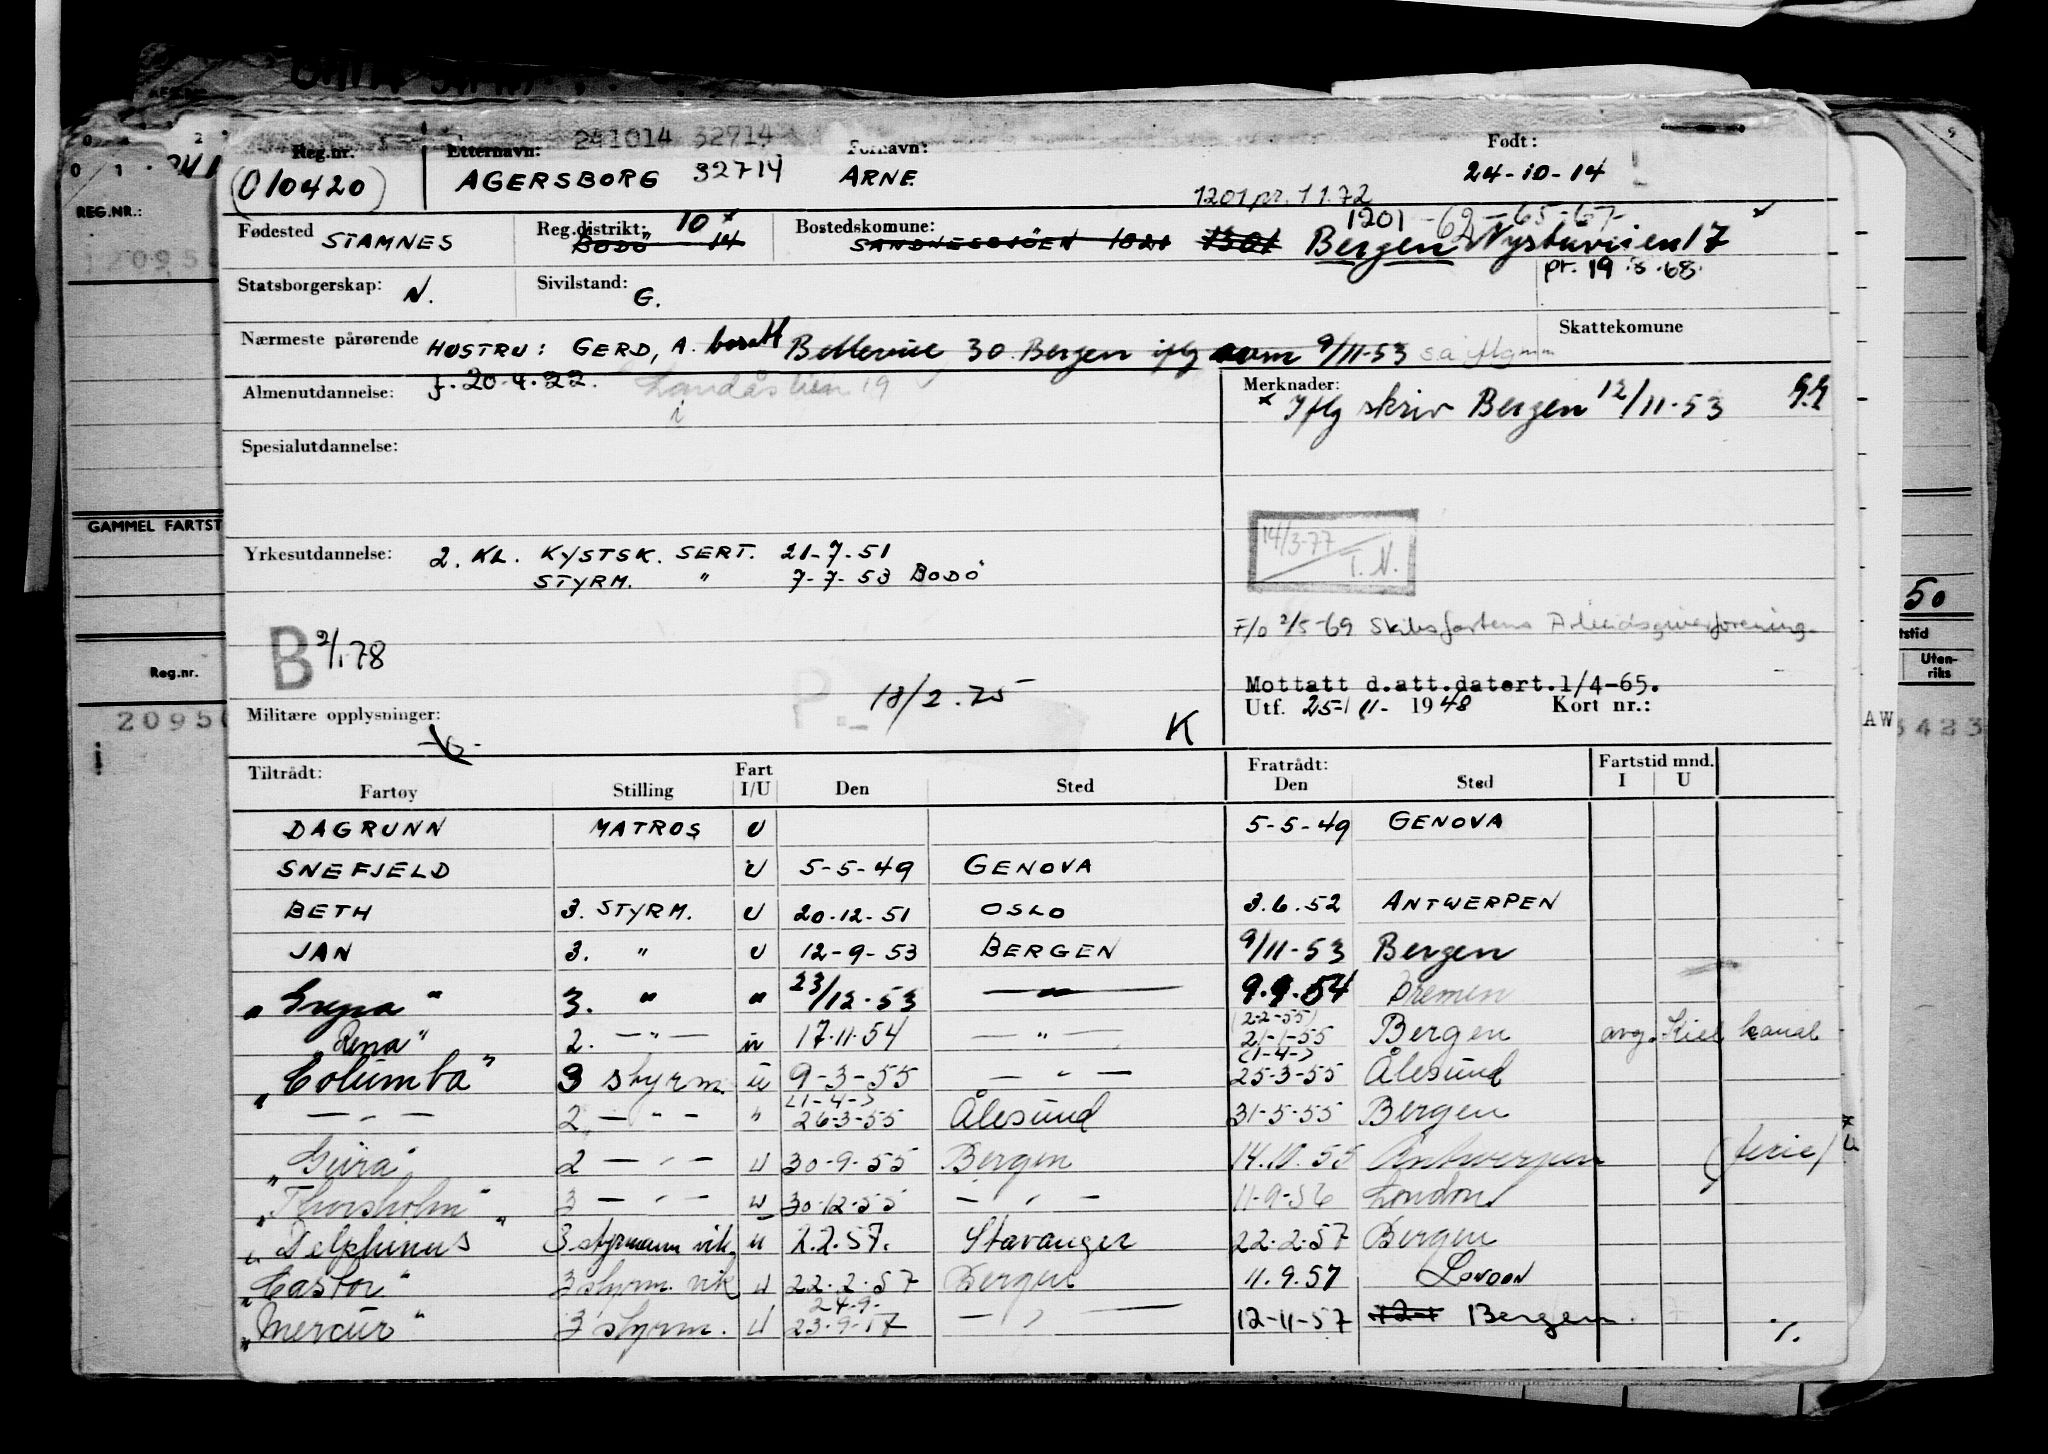 241014 32714
Reg.nr. Etternavn: Fornavn: Født:
(010420) AGERSBORG 32714 ARNE 24-10-14
1201 pr. 1 1.72
Fødested STAMNES Reg.distrikt: 10 x Bostedskomune: 1201 -62-65-67-
BODÖ 14 SANDNESSJÖEN 1820 1301 Bergen Nystuveien 17 x
pr. 19.8.68.
Statsborgerskap: N. Sivilstand: G.
Nærmeste pårørende HUSTRU: GERD, A. bosatt Bellevue 30 Bergen iflg som 9/11-53 Skattekomune
f. 20.4.22. Landåslien 19
Almenutdannelse: Merknader:
x Iflg skriv Bergen 12/11-53
Spesialutdannelse:
GAMMEL FARTST
14/3-77
T. N.
Yrkesutdannelse: 2. KL. KYSTSK. SERT. 21-7-51
STYRM. " 7-7-53 BODÖ
F/o 2/5-69 Skibsfartens Arbeidsgiverforening.
B 2/1 78
18/2.75
Mottatt d.att.datert.1/4-65.
Militære opplysninger: K Utf. 25-11- 1948 Kort nr.:
Tiltrådt: Fart Fratrådt: Fartstid mnd.
Fartøy Stilling I/U Den Sted Den Sted I U
DAGRUNN MATROS U 5-5-49 GENOVA
SNEFJELD U 5-5-49 GENOVA
BETH 3. STYRM. U 20-12-51 OSLO 3.6.52 ANTWERPEN
JAN 3. " U 12-9-53 BERGEN 9/11-53 Bergen
3. " " 23/12-53 — " — 9.9.54 Bremen
(2-2-55)
"Rena" 2. — " — u 17.11.54 — " — 21-1-55 Bergen avg. Kiel kanal
(1-4-)
"Columba" 3 styrm. u 9-3-55 — " — 25-3-55 Ålesund
(1-4-)
— " — 2. — " — " 26-3-55 Ålesund 31-5-55 Bergen
2 — " — U 30-9-55 Bergen 14.10.55 Antwerpen (ferie)
"Thorsholm" 3 — " — U 30-12-55 — " — 11-9-56 London
"Delphinus" 3.styrmann vik. u 2.2.57. Stavanger 22-2-57 Bergen
"Castor" 3 styrm. vik U 22.2.57 Bergen 11.9.57 LONDON
24-9-
"Mercur" 3 styrm. U 23-9-57 — " — 12-11-57 Bergen. ./.
REG.NR.:
Reg.nr.
50
Uten-
riks
AW